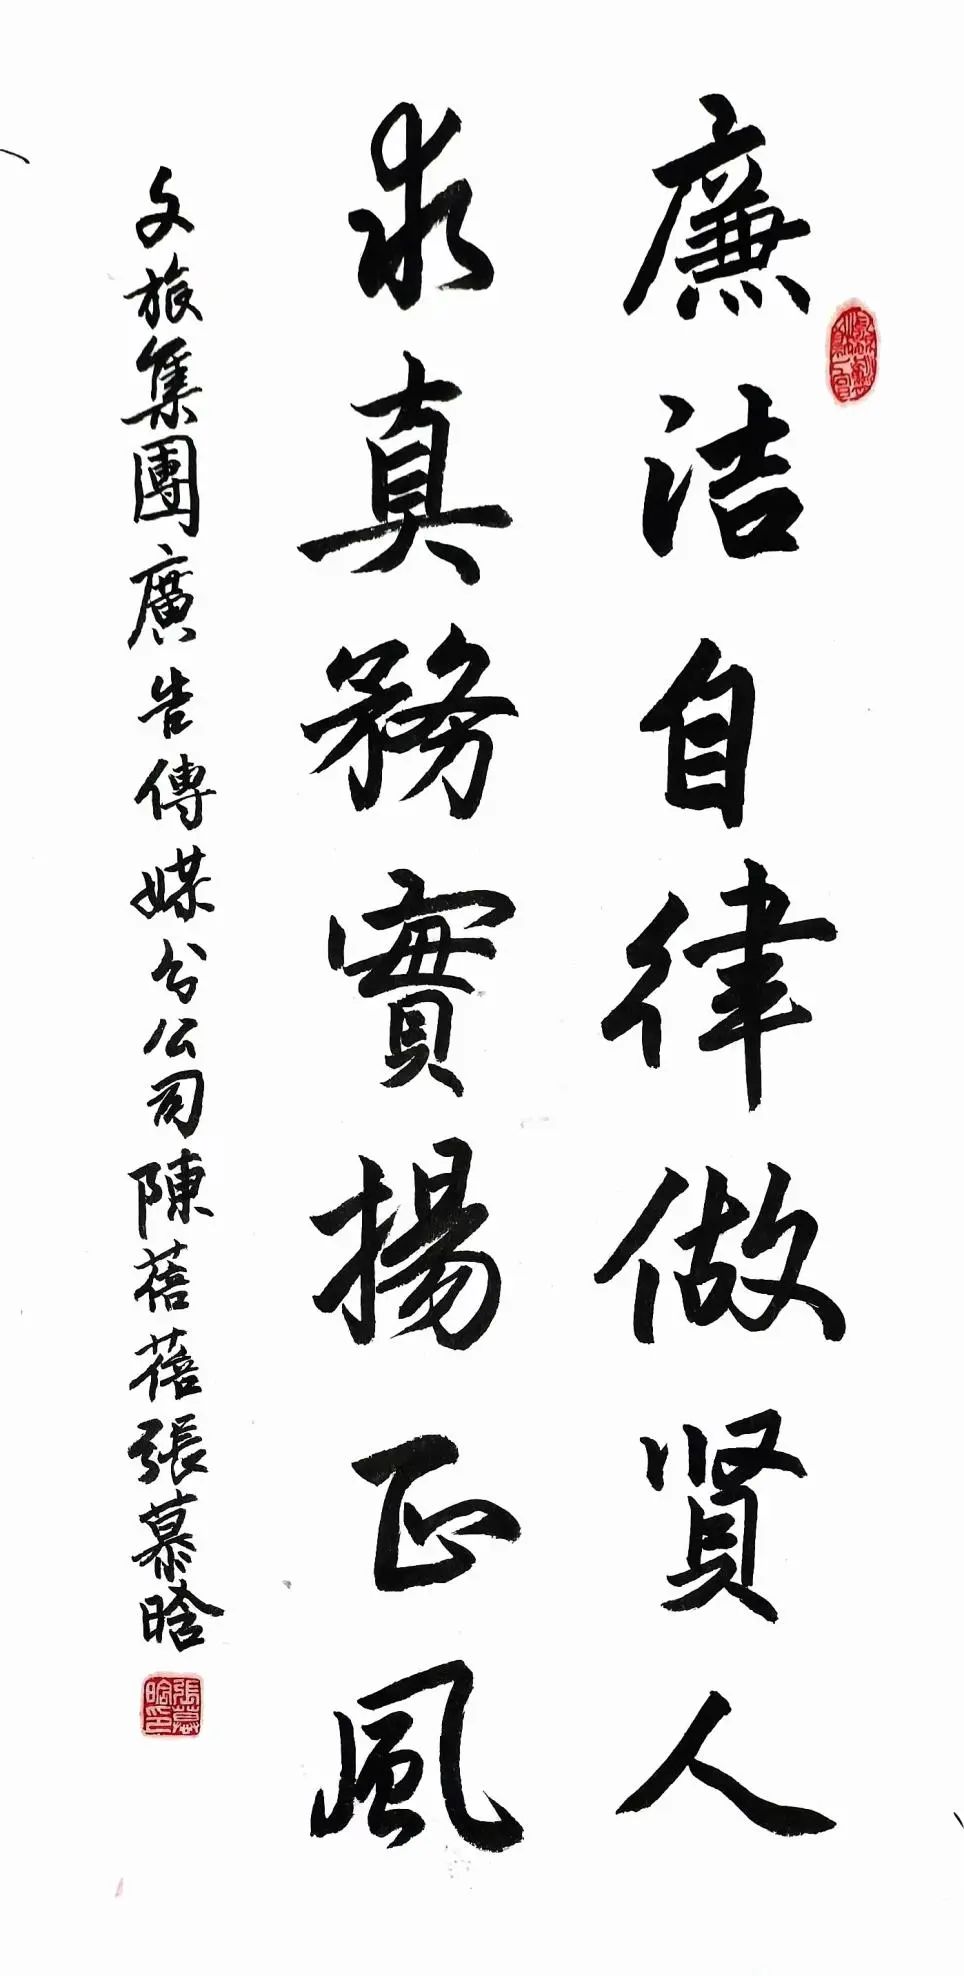 廉洁自律做贤人
求真務實揚正風
文旅集團廣告傳媒分公司陳蓓蓓張慕晗
張慕晗印